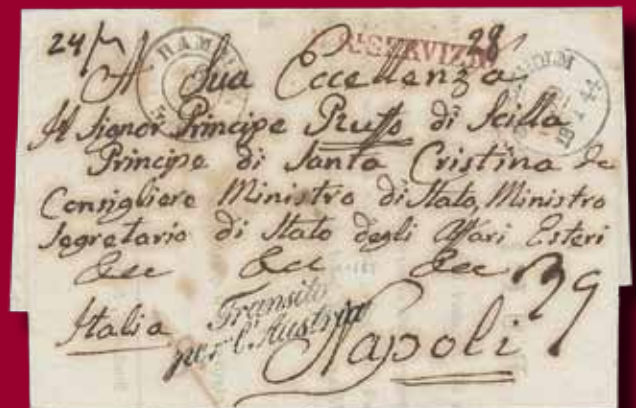 24/ 28
HAM
R. SERVIZIO
A Sua Eccellenza
Il Signor Principe Ruffo di Scilla
Principe di Santa Cristina &c
Consigliere Ministro di Stato, Ministro
Segretario di Stato degli Affari Esteri
&cc &cc &cc
39
Italia
Transito
per l'Austria
Napoli